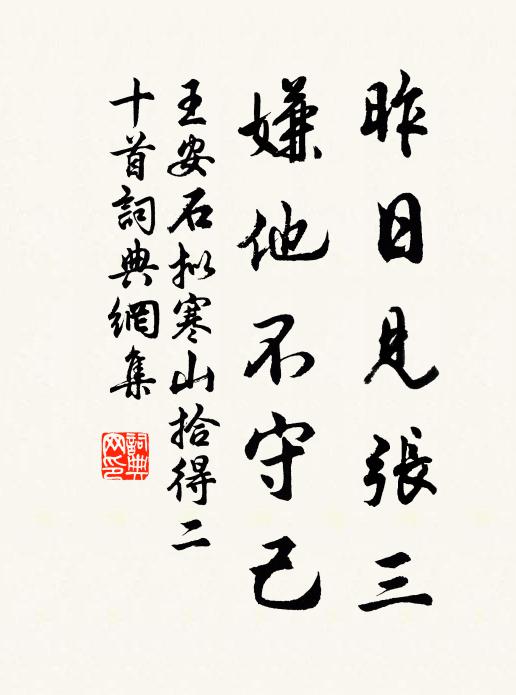 昨日見張三
嫌他不守己
王安石拟寒山拾得二
十首詞典網集
詞典
网印